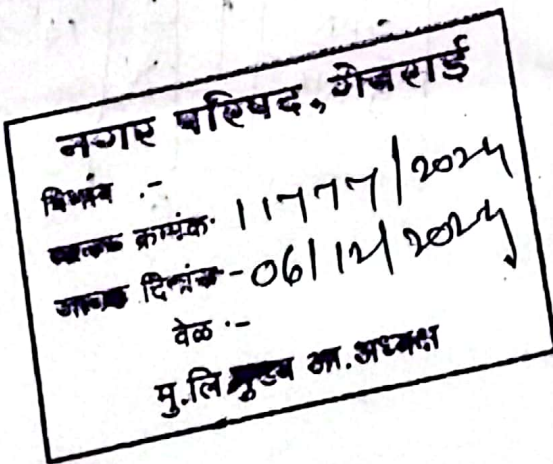 नगर परिषद, गेवराई
विभाग :-
आवक क्रमांक. 11777/२०२५
आवक दिनांक - 06/12/२०२५
वेळ :-
मु.लि मुख्य आ. अध्यक्ष